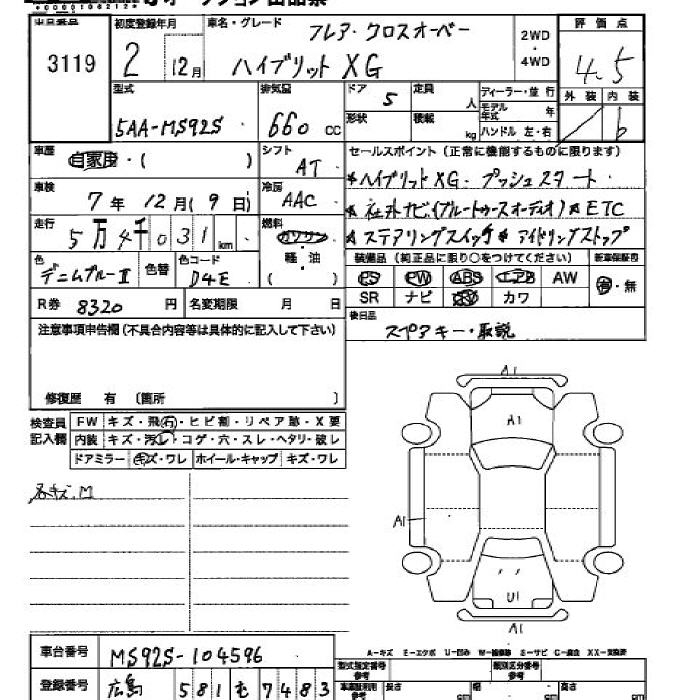 出品番号 初度登録年月 車名・グレード フレア・クロスオーバー 2WD・4WD 評価点
3119 2 12月 ハイブリットXG 4.5
型式 排気量 ドア 5 定員 人 ディーラー・並行 外装 内装
5AA-MS92S 660cc 形状 積載 kg モデル年式 年 ハンドル 左・右 b
車歴 自家用・( ) シフト AT セールスポイント(正常に機能するものに限ります)
車検 7年12月(9日) 冷房 AAC *ハイブリットXG・プッシュスタート
*社外ナビ(ブルートゥースオーディオ) *ETC
走行 5万4千031km 燃料 ガソリン 軽・油 ( ) *ステアリングスイッチ *アイドリングストップ
色 デニムブルーII 色替 色コード D4E 装備品(純正品に限り○をつけてください) 新車保証書
PS PW ABS エアB AW 有・無
R券 8320円 名変期限 月 日 SR ナビ カワ
注意事項申告欄(不具合内容等は具体的に記入して下さい) 後日品
スペアキー・取説
修復歴 有 (箇所 )
検査員記入欄 FW キズ・飛石・ヒビ割・リペア跡・X要
内装 キズ・汚レ・コゲ・穴・スレ・ヘタリ・破レ
ドアミラー キズ・ワレ ホイール・キャップ キズ・ワレ
名キズ.M
A1
A1
A1
U1
A1
A-キズ E-エクボ U-凹み W-補修跡 S-サビ C-腐食 XX-交換済
車台番号 MS92S-104596
型式指定番号 参考 類別区分番号 参考
登録番号 広島 581 も 7483 車庫証明用 参考 長さ cm 幅 cm 高さ cm